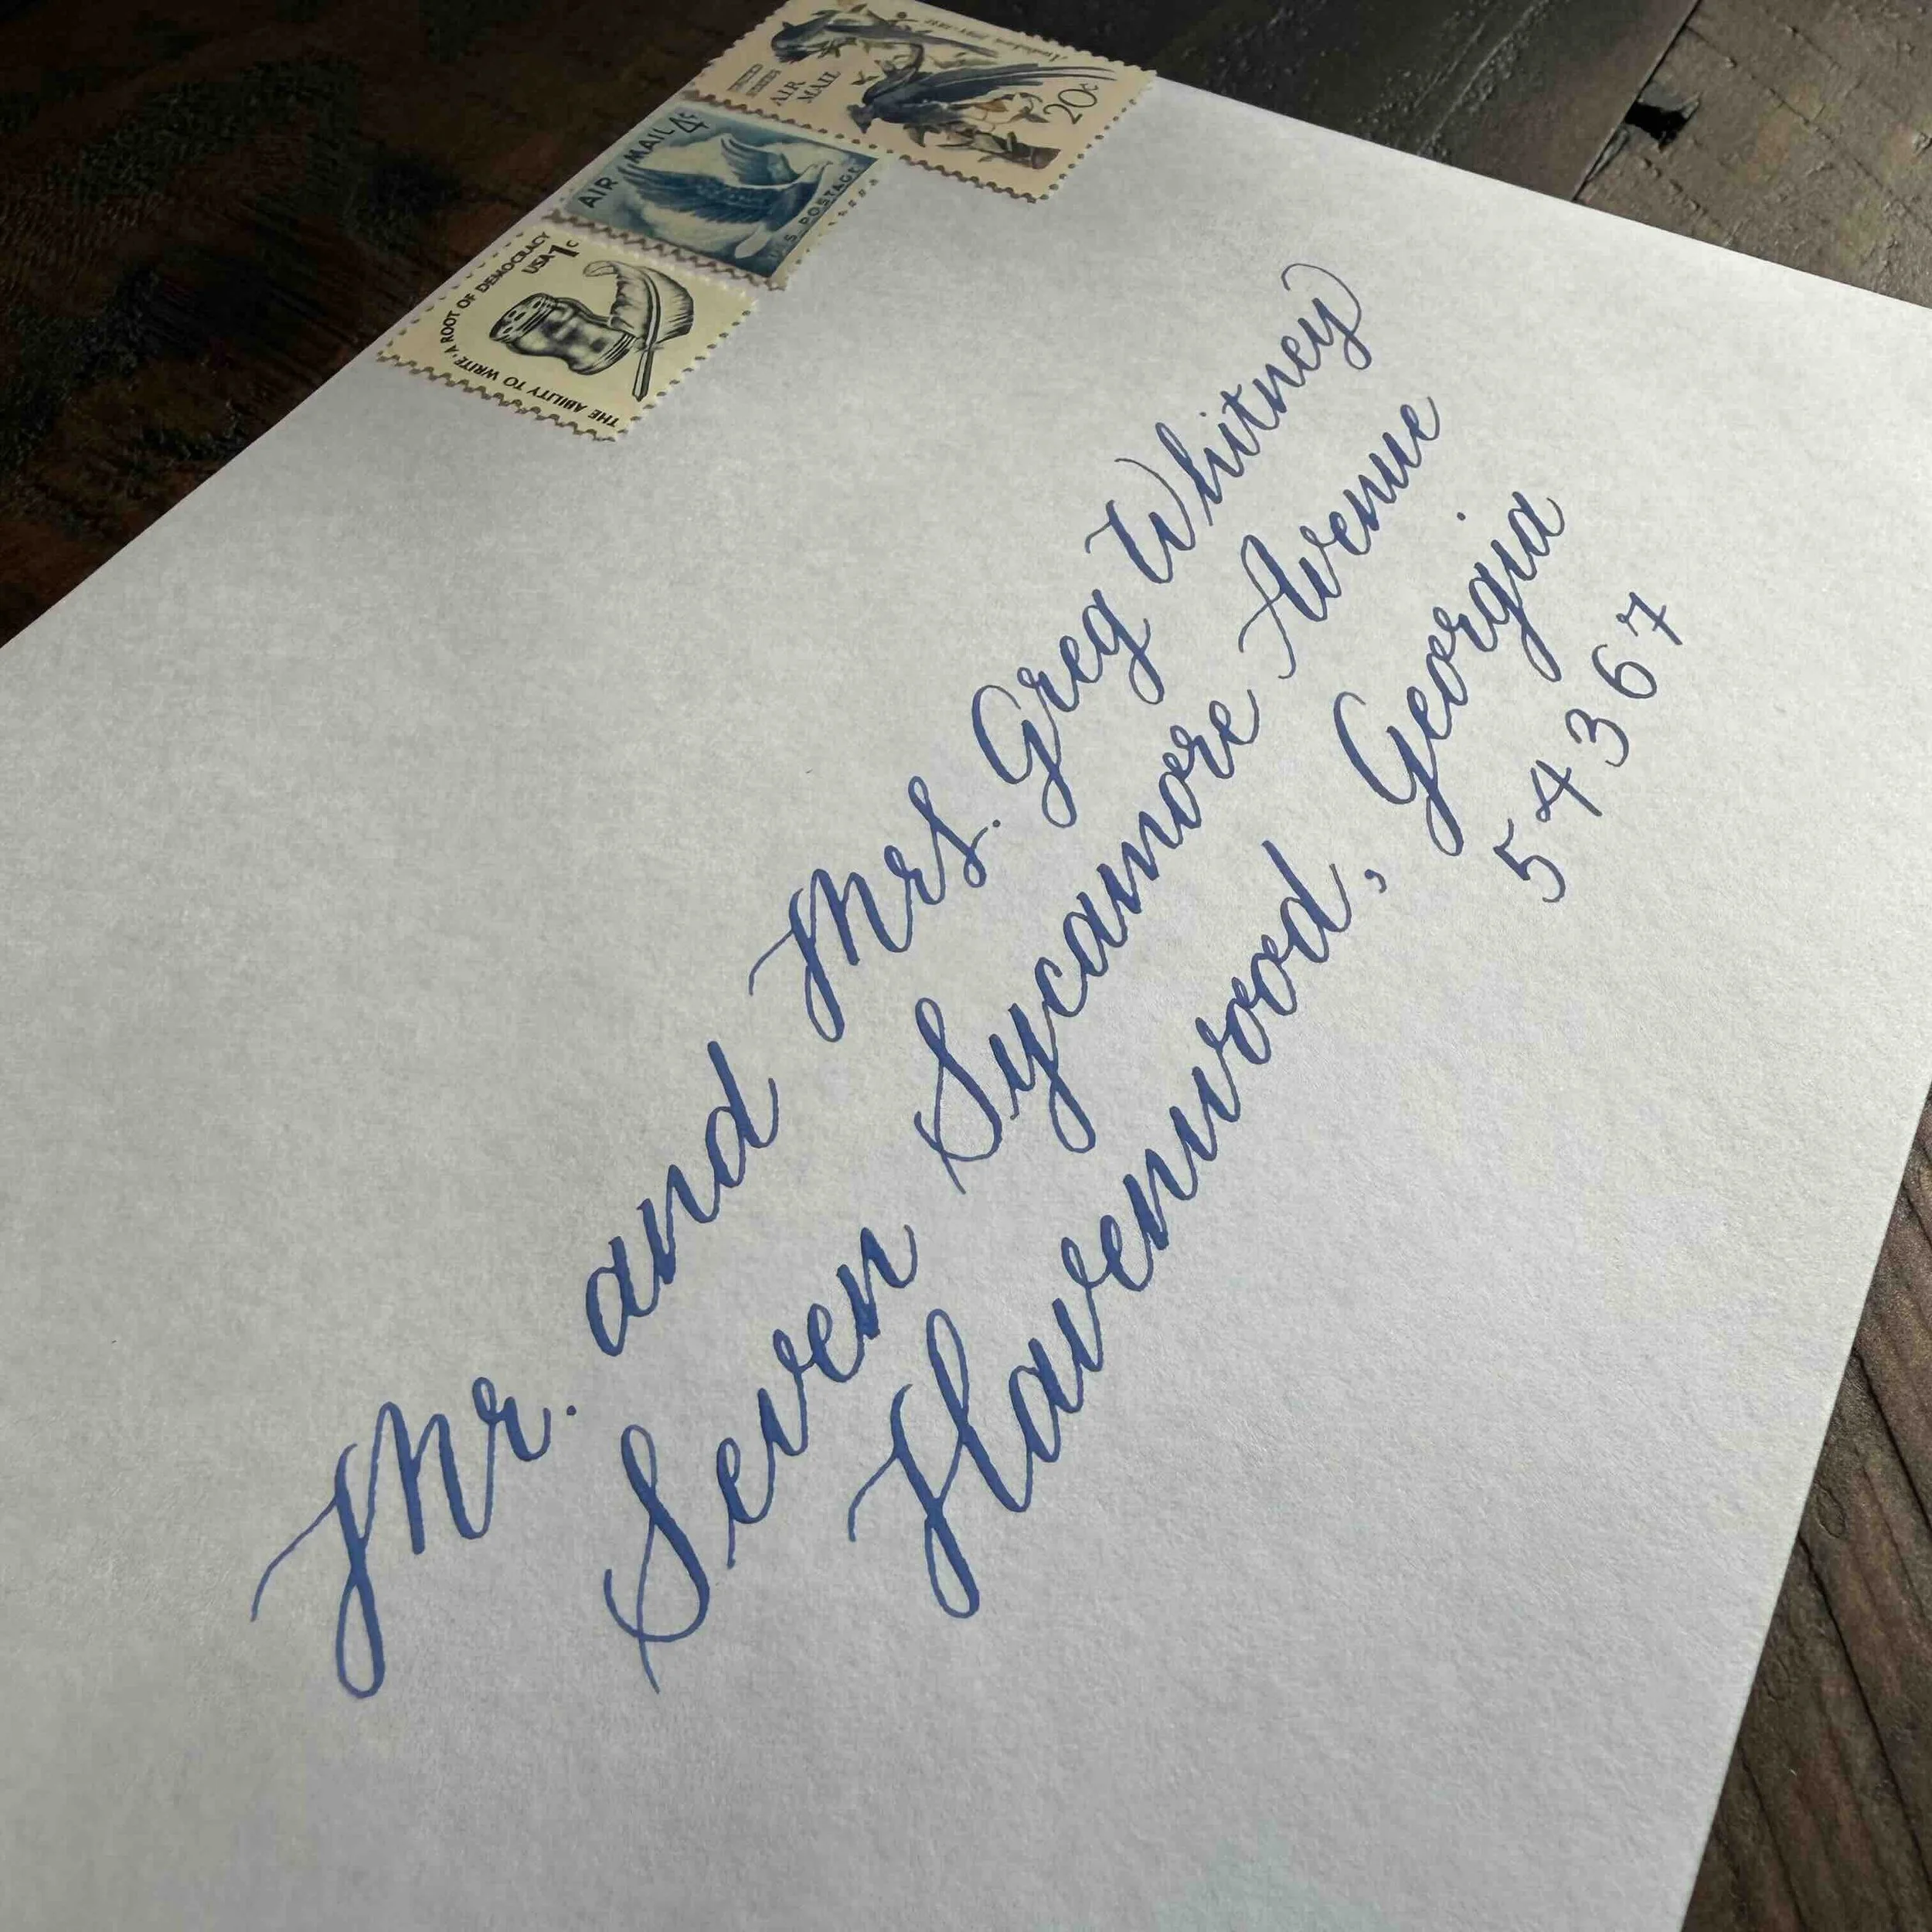 Audubon 1785-1851
UNITED STATES
AIR MAIL
20c
AIR MAIL 4¢
U S POSTAGE
USA 1c
THE ABILITY TO WRITE · A ROOT OF DEMOCRACY
Mr. and Mrs. Greg Whitney
Seven Sycamore Avenue
Havenwood, Georgia
54367